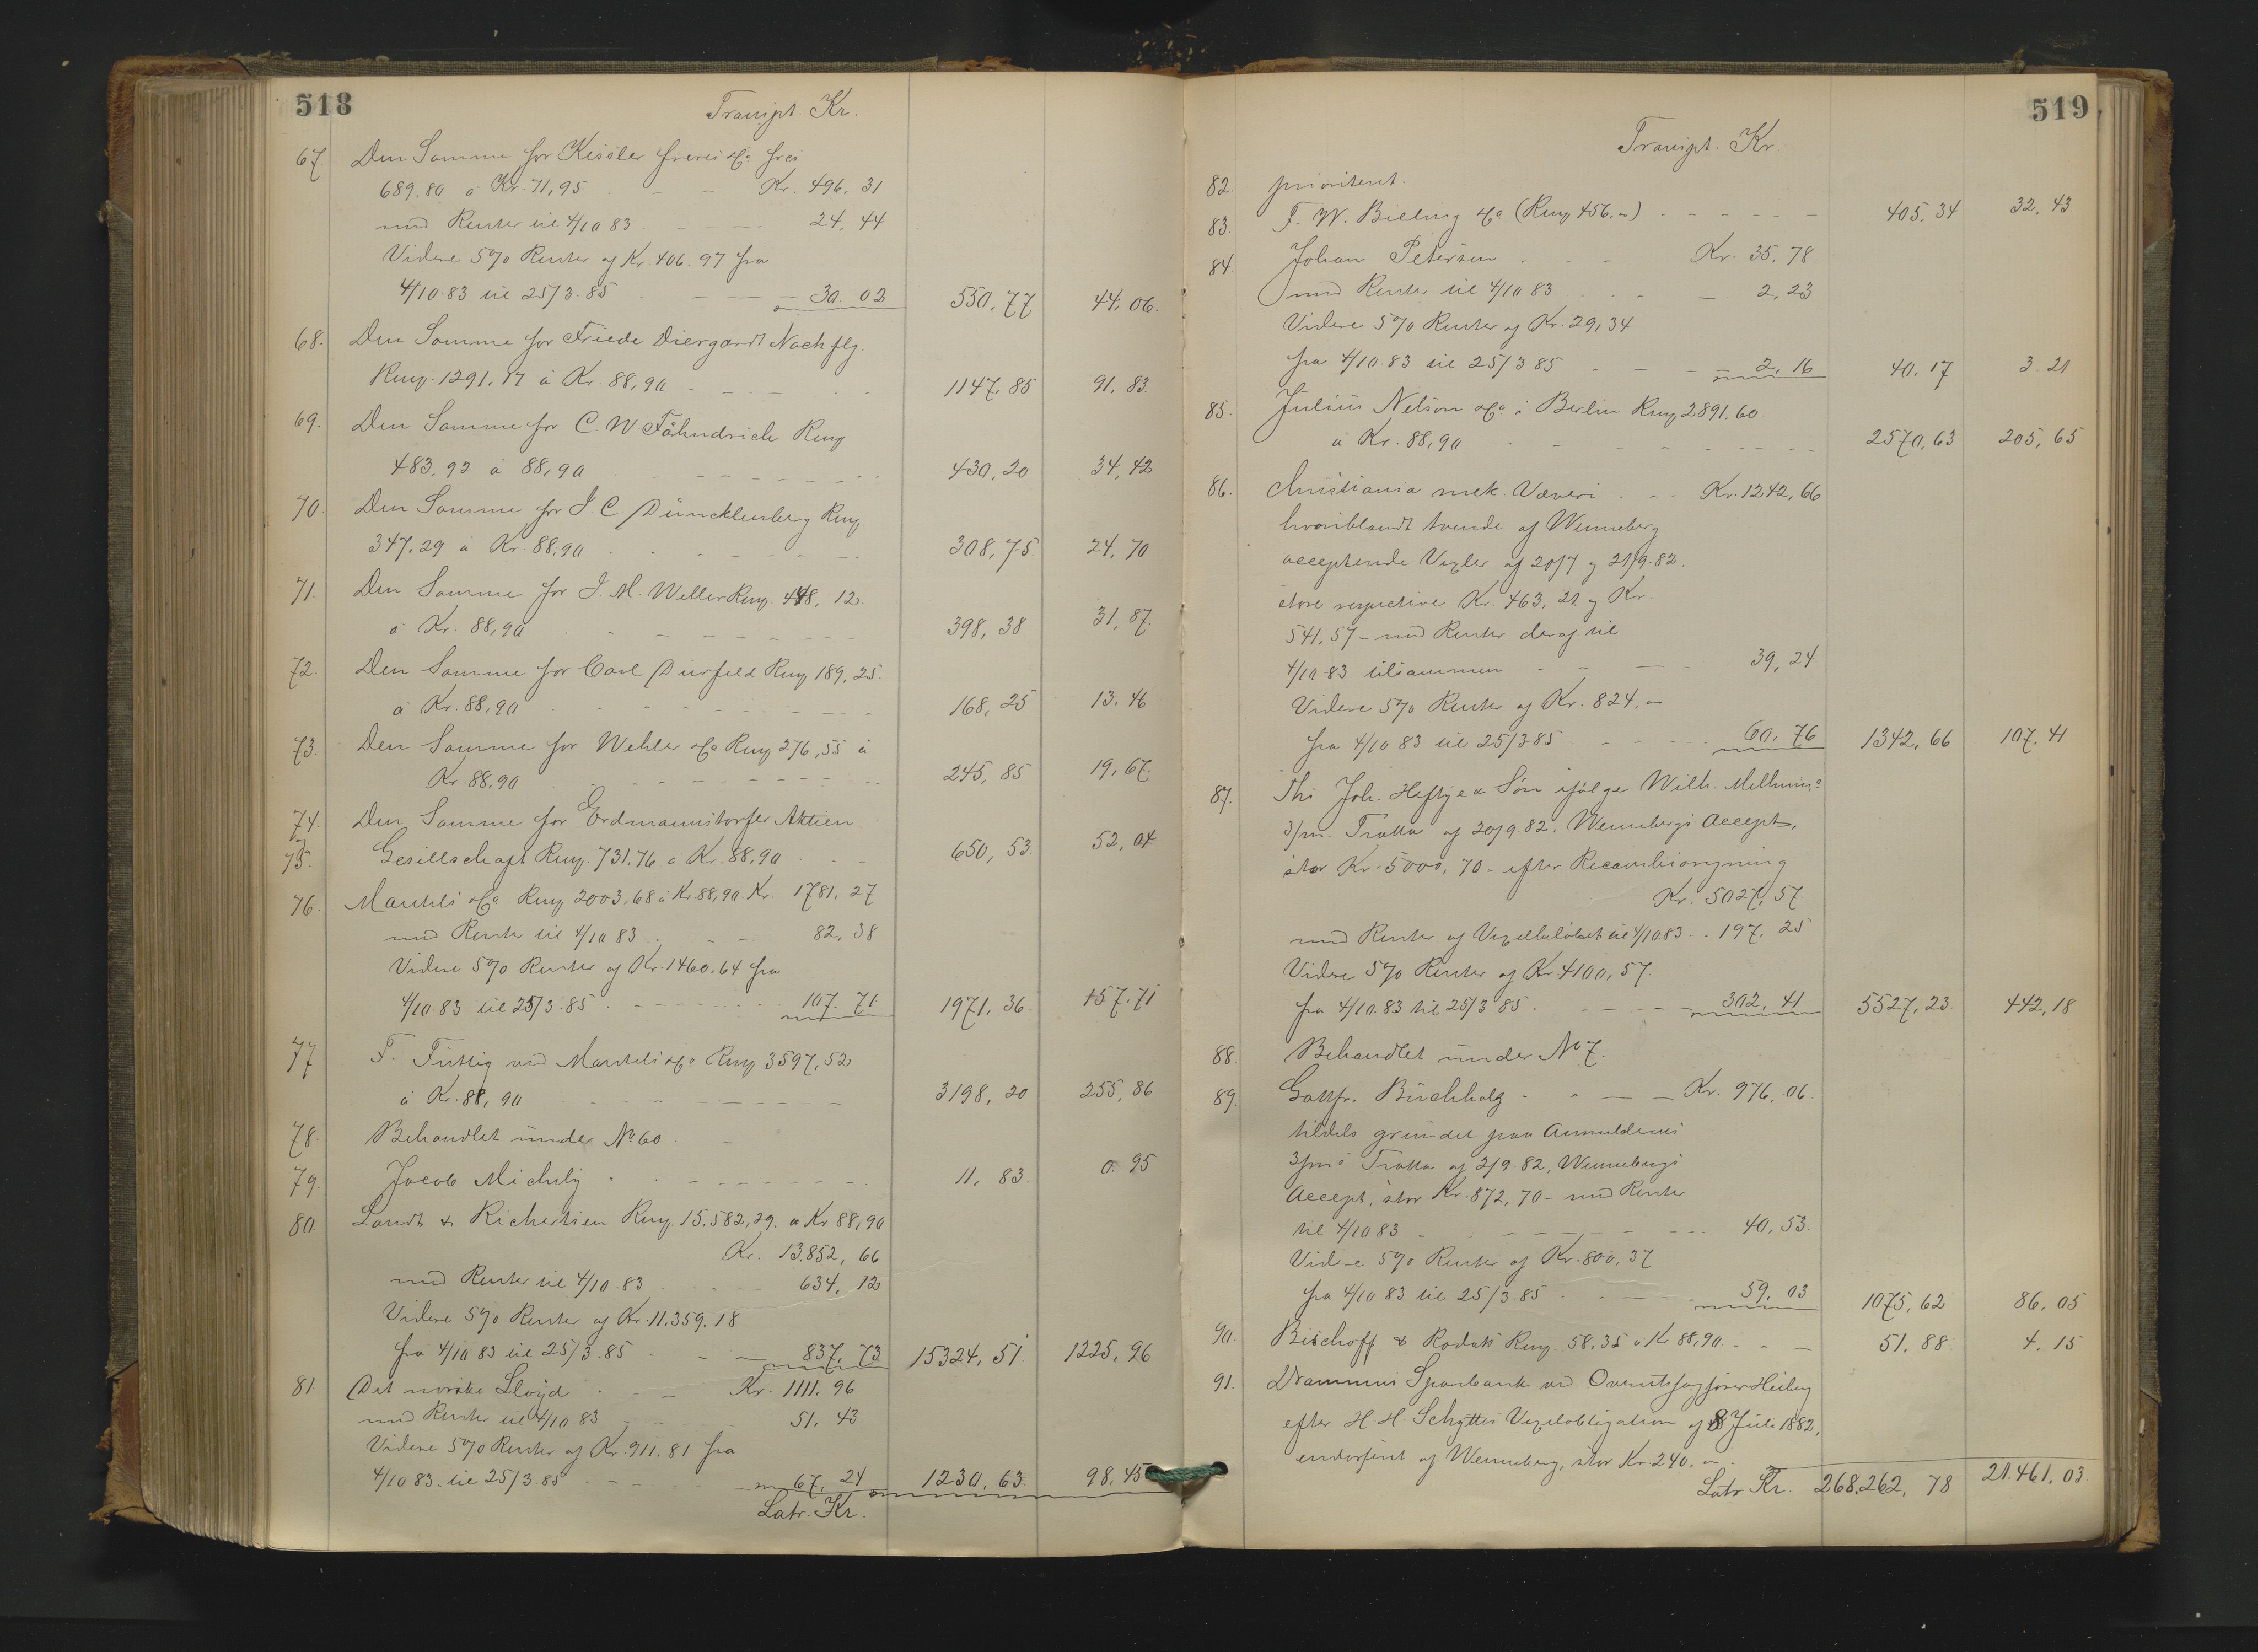 518
Transpt. Kr.
67. Den Samme for Kessler freres & Co frcs
689.80 à Kr. 71,95 - - - Kr. 496. 31
med Renter til 4/10 83 - - - - 24, 44
Videre 5% Renter af Kr. 406. 97 fra
4/10 83 til 25/3. 85 - - - 30. 02 550,77 44,06.
68. Den Samme for Friede Diergardt Nachflg.
Rmg. 1291.17 à Kr. 88,90 - - - - 1147,85 91. 83.
69. Den Samme for C. W Fåhndrich Rmg
483. 92 à 88,90 - - - - 430,20 34,42
70. Den Samme for J. C. Düncklenberg Rmg.
347.29 à Kr. 88,90 - - - - 308,75. 24,70
71. Den Samme for J. M. Weller Rmg. 448, 12.
à Kr. 88,90 - - - - 398,38 31,87.
72. Den Samme for Carl Dürfeld Rmg 189,25.
à Kr. 88,90 - - - - 168,25 13.46
73. Den Samme for Wehler & Co Rmg 276,55 à
Kr. 88,90 - - - - 245,85 19,67.
74. Den Samme for Erdmannsdorfer Aktien
og
75. Gesellschaft Rmg. 731.76 à Kr. 88,90 - - 650,53. 52,04
76. Mantels & Co Rmg 2003.68 à Kr 88,90. Kr. 1781. 27
med Renter til 4/10 83 - - - 82, 38
Videre 5% Renter af Kr. 1460.64 fra
4/10 83 til 25/3.85 - - - - 107. 71 1971,36 157.71
77 F. ved Mantels & Co Rmg 3597,52
à Kr. 88, 90 - - - - 3198,20 255,86
78. Behandlet under No 60. -
79. Jacob - - - - 11. 83. 0. 95
80. Landt & Richertsen Rmg. 15.582,29. à Kr 88,90
Kr. 13.852, 66
med Renter til 4/10 83 - - - - 634. 12
Videre 5% Renter af Kr. 11.359.18
fra 4/10 83 til 25/3.85 - - - 837. 73 15324,51 1225,96
81 Det norske Lloyd - - - Kr. 1111. 96
med Renter til 4/10 83 - - - - 51. 43
Videre 5% Renter af Kr. 911. 81 fra
4/10 83. til 25/3.85 - - - - 67, 24 1230,63. 98.45
Latr. Kr.
519
Transpt. Kr.
82. prioritent.
83. F. W. Bieling & Co (Rmg 456.–) - - - - 405,34 32,43
84. Johan Petersen - - - Kr. 35.78
med Renter til 4/10 83 - - - 2,23
Videre 5% Renter af Kr. 29,34
fra 4/10.83 til 25/3 85 - - - 2,16 40.17 3.21
85. Julius Nelson & Co i Berlin Rmg 2891.60
à Kr. 88,90 - - - - 2570,63 205,65
86. Christiania mek. Væveri - - - Kr. 1242,66
hvoriblandt tvende af Wenneberg
accepterede Vexler af 20/7 og 21/9.82.
store respective Kr. 463, 21 og Kr.
541,57 – med Renter deraf til
4/10 83 tilsammen - - - 39,24
Videre 5% Renter af Kr. 824,–
fra 4/10 83 til 25/3 85 - - - - 60,76 1342,66 107.41
87. Ths Joh. Heftye & Søn ifølge Wilh.
3/m. Tratta af 20/9.82. Wennebergs Accept,
stor Kr. 5000,70 – efter Recambioregning
Kr. 5027,57
med Renter af Vexelbeløbet til 4/10 83 - - 197, 25
Videre 5% Renter af Kr. 4100,57
fra 4/10.83 til 25/3 85 - - - - 302,41 5527,23. 442,18
88. Behandlet under No 7.
89. Gottfr. Buchholz - - - Kr. 976.06.
tildels grundet paa Anmelderens
3/ms Tratta af 2/9.82, Wennebergs
Accept, stor Kr. 872,70 – med Renter
til 4/10 83 - - - - 40,53.
Videre 5% Renter af Kr. 800,37
fra 4/10 83 til 25/3.85 - - - - 59,03 1075,62 86,05
90. Bischoff & Rodatz Rmg. 58,35 à Kr 88,90 - - - 51.88 4.15
91. Drammens Sparebank ved Overretssagfører Heiberg
efter H. H. Schyttes Vexelobligation af 8 Juli 1882,
endosseret af Wenneberg, stor Kr. 240.–.
Latr Kr. 268.262,78 21.461,03.